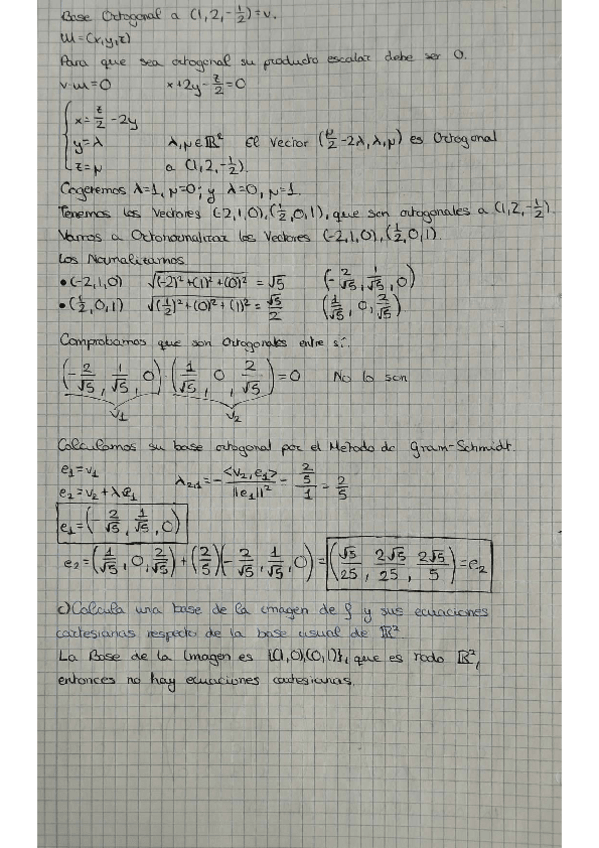 Base Octogonal a (1, 2, -1/2) = v.
u = (x, y, z)
Para que sea ortogonal su producto escalar debe ser 0.
v·u = 0    x + 2y - z/2 = 0
{ x = z/2 - 2y
y = λ    λ, μ ∈ ℝ²    El vector (μ/2 - 2λ, λ, μ) es Ortogonal
z = μ    a (1, 2, -1/2).
Cogeremos λ=1, μ=0; y λ=0, μ=1.
Tenemos los Vectores (-2,1,0), (1/2,0,1), que son ortogonales a (1,2,-1/2).
Vamos a Octonormalizar los Vectores (-2,1,0), (1/2,0,1).
Los Normalizamos
• (-2,1,0)    √((-2)²+(1)²+(0)²) = √5    (-2/√5, 1/√5, 0)
• (1/2,0,1)    √((1/2)²+(0)²+(1)²) = √5/2    (1/√5, 0, 2/√5)
Comprobamos que son Ortogonales entre sí.
(-2/√5, 1/√5, 0)·(1/√5, 0, 2/√5) = 0    No lo son
v₁    v₂
Calculamos su base ortogonal por el Método de Gram-Schmidt.
e₁ = v₁    λ₂,₁ = - <v₂, e₁>/||e₁||² = (2/5)/1 = 2/5
e₂ = v₂ + λe₁
e₁ = (-2/√5, 1/√5, 0)
e₂ = (1/√5, 0, 2/√5) + (2/5)(-2/√5, 1/√5, 0) = (√5/25, 2√5/25, 2√5/5) = e₂
c) Calcula una base de la imagen de f y sus ecuaciones
cartesianas respecto de la base usual de ℝ².
La Base de la Imagen es {(1,0),(0,1)}, que es todo ℝ²,
entonces no hay ecuaciones cartesianas.